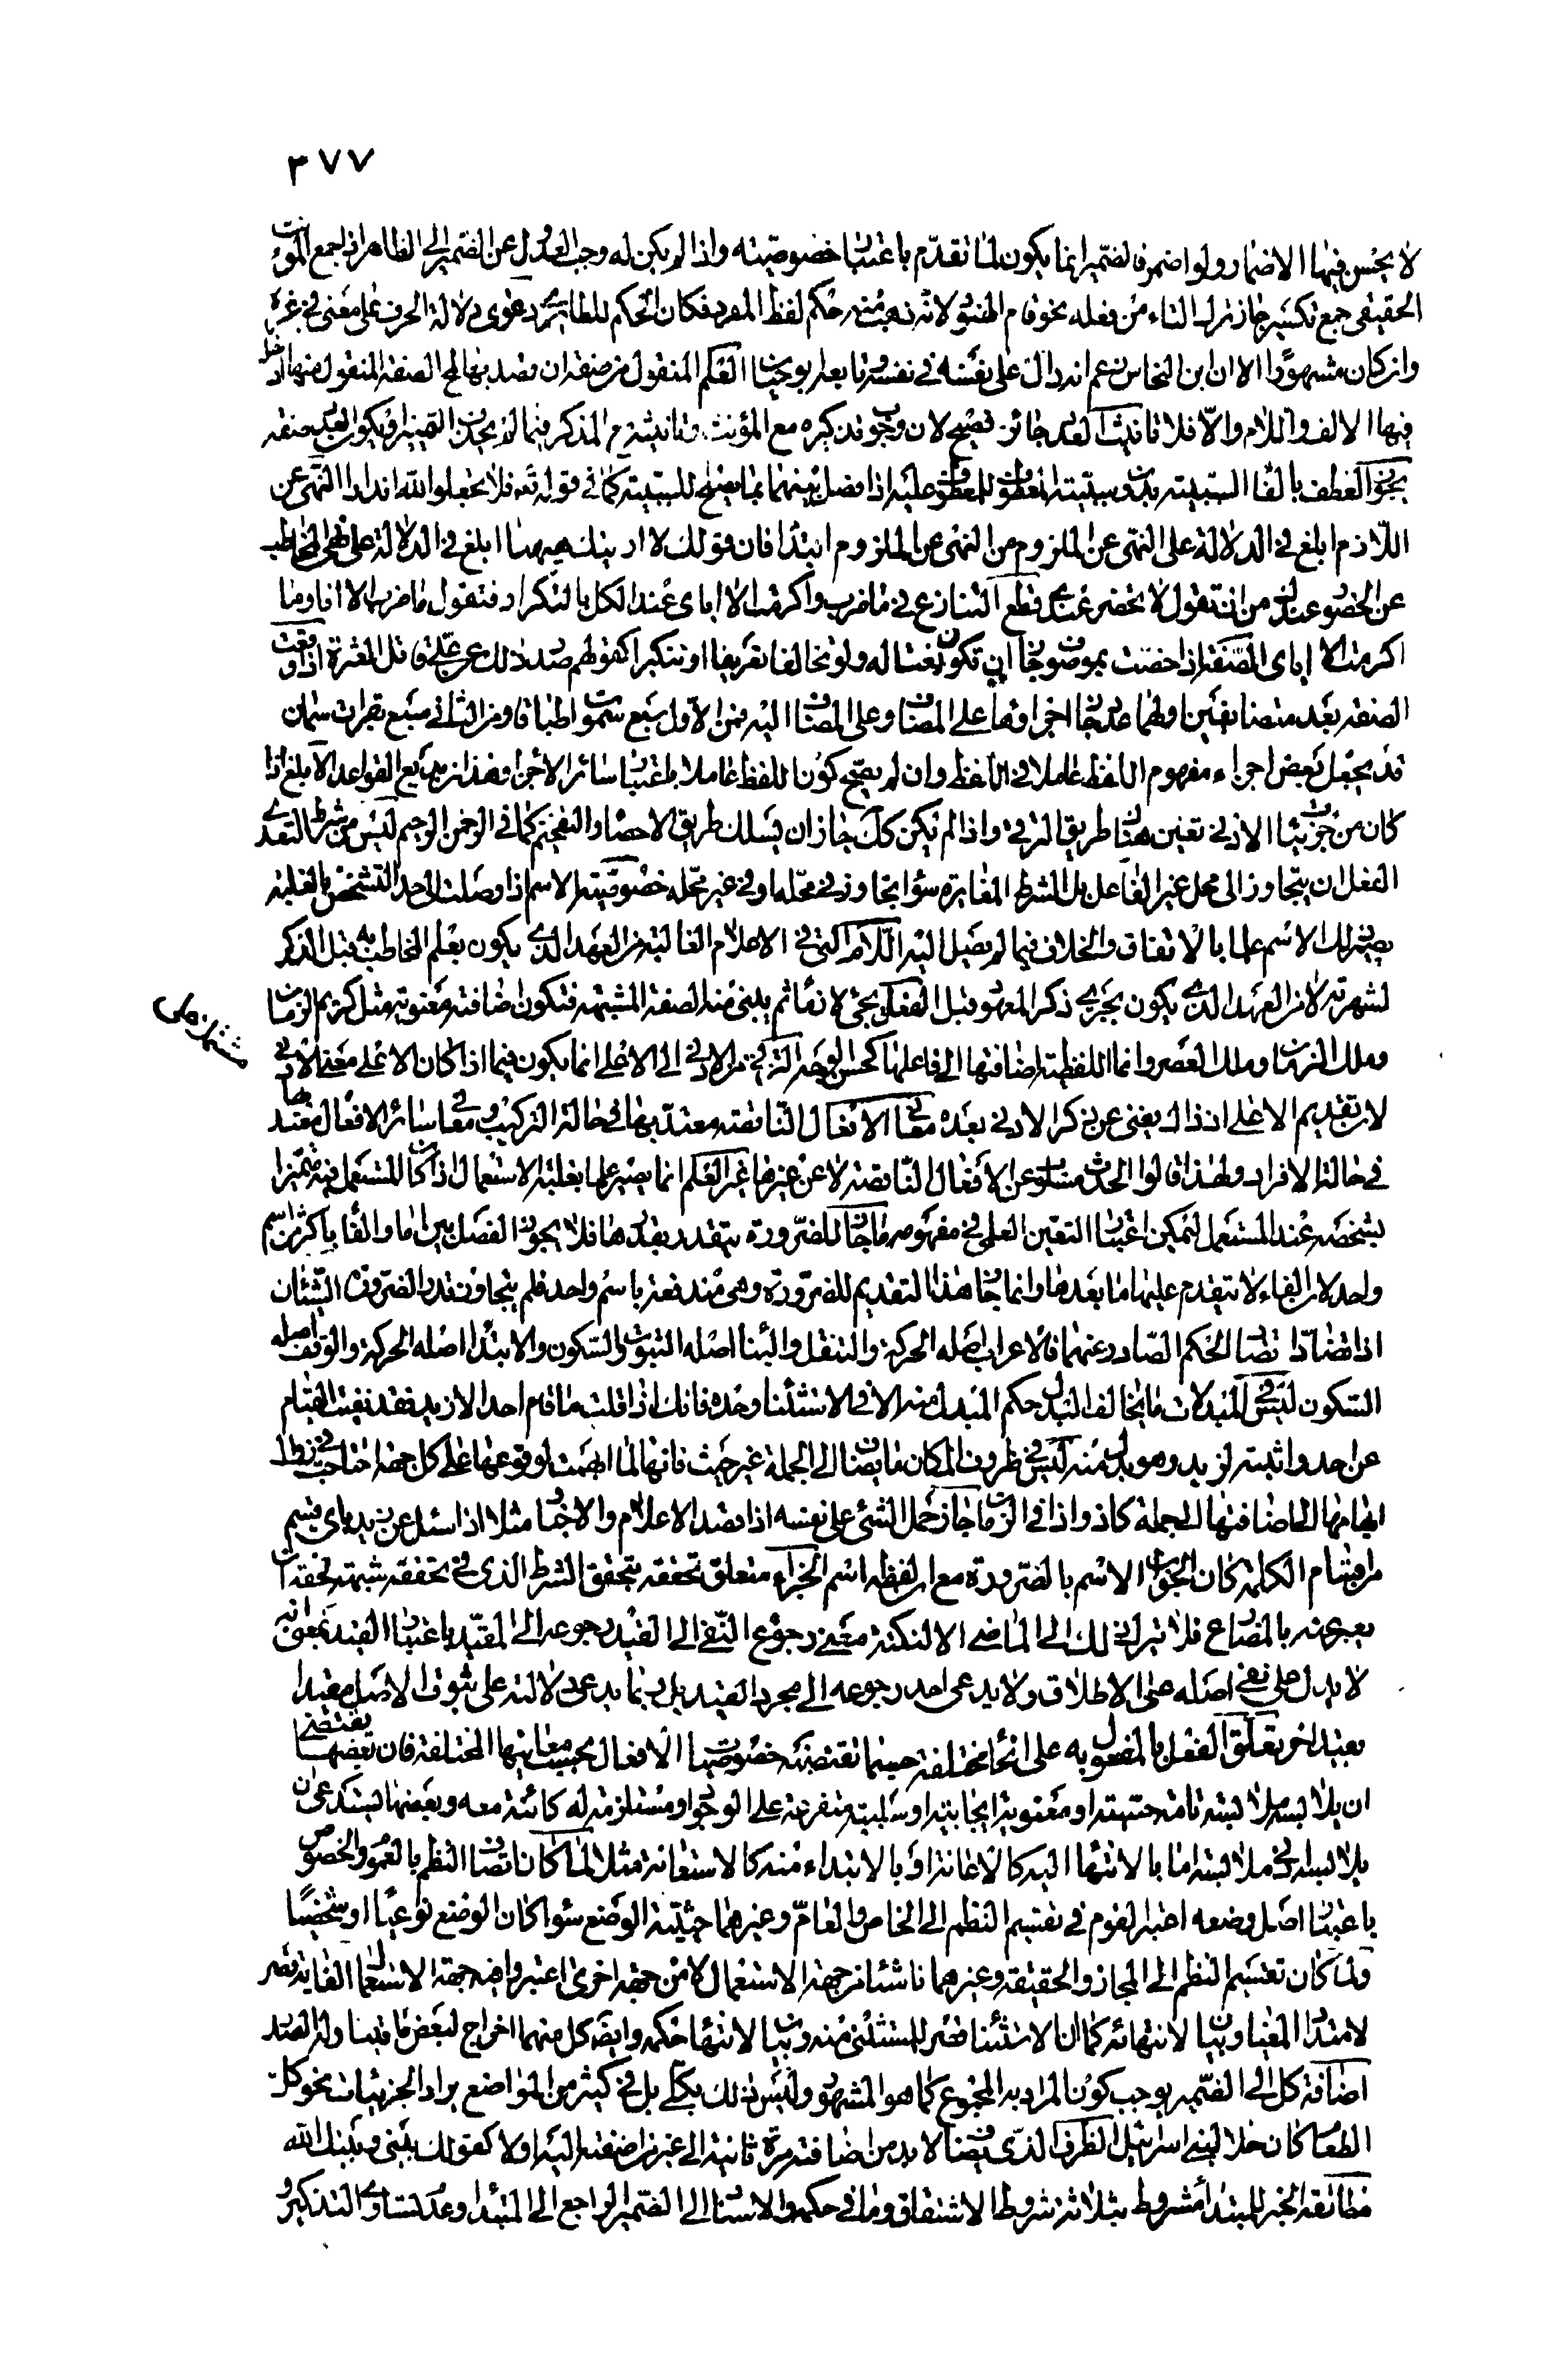 ٣٧٧
لا يحسن فيها الاضمار ولو اضمر فالضمير انما يكون لما تقدم باعتبار خصوصيته واذا لم يكن له وجب العدول عن الضمير الى الظاهر في جمع المؤنث
الحقيقي جمع تكسير جاز ترك التاء من فعله نحو قام الهنود لانه ذهب منه حكم لفظ المفرد فكان الحكم للطارى دعوى دلالة الحرف على معنى في غيره
وان كان مشهورا الا ان ابن النحاس زعم انه دال على نفسه في نفسه وتابعه ابو حيان العلم المنقول من صفة ان قصد به لمح الصفة المنقول منها ادخل
فيها الالف واللام والا فلا تانيث العدد جائز فصيح لان وجوب تذكيره مع المؤنث وتانيثه مع المذكر فيما لم يحذف التمييز او يكون العدد صفة
يجوز العطف بالفاء السببية بدون سببية المعطوف للمعطوف عليه اذا فصل بينهما بما يصلح للسببية كما في قوله تعه فلا تجعلوا لله اندادا النهى عن
اللازم ابلغ في الدلالة على النهى عن الملزوم من النهى عن الملزوم ابتداء فان قولك لا ارينك هيهنا ابلغ في الدلالة على نهى المخاطب
عن الحضور عندك من ان تقول لا تحضر عندى قطع التنازع في ما ضرب واكرمت الا اياى عند الكل بالتكرار فتقول ما ضرب الا انا وما
اكرمت الا اياى الصفة اذا خصت بموصوف جاز ان تكون نعتا له ولو تخالفا تعريفا او تنكيرا كقولهم صدر ذلك عن على قاتل المغيرة اذا وقعت
الصفة بعد متضايفين اولهما عدد جاز اجراؤها على المضاف وعلى المضاف اليه فمن الاول سبع سموات طباقا ومن الثاني سبع بقرات سمان
قد يجعل بعض اجزاء مفهوم اللفظ عاملا في اللفظ وان لم يصح كون اللفظ عاملا باعتبار سائر الاجزاء وهذا من بدايع القواعد الابلغ اذا
كان من جزئيات الادنى تعين هناك طريق الترقي واذا لم يكن كذلك جاز ان يسلك طريق الاحصاء والتفخيم كما في الرحمن الرحيم ليس من شرط التعدى
الفعل ان يتجاوز الى محل غير الفاعل بل الشرط المغايرة سواء تجاوز في محله او في غير محله خصوصية الاسم اذا وصلت الى حد التشخص بالغلبة
يصير ذلك الاسم علما بالاتفاق والخلاف فيما لم يصل اليه اللام التي في الاعلام الغالبة من العهد الذى يكون بعلم المخاطب به قبل الذكر
لشهرته لا من العهد الذى يكون بجرى ذكر المعهود قبل الفعل يجئ لازما ثم يبنى منه الصفة المشبهة فتكون اضافته معنوية مثل كريم الزمان
وملك الزمان وملك العصر وانما اللفظية اضافتها الى فاعلها كحسن الوجه الترقي من الادنى الى الاعلى انما يكون فيما اذا كان الاعلى معنى الادنى
لان تقديم الاعلى اذ ذاك يغنى عن ذكر الادنى بعده معاني الافعال الناقصة معتد بها في حالة التركيب ومعاني سائر الافعال معتد بها
في حالة الافراد ولهذا قالوا الحدث مسلوب عن الافعال الناقصة لا عن غيرها غير العلم انما يصير علما بغلبة الاستعمال اذا كان المستعمل فيه متميزا
بشخصه عند المستعمل ليمكن اعتبار التعين العلمى في مفهومه ما جاز للضرورة يتقدر بقدرها فلا يجوز الفصل بين اما والفاء باكثر من اسم
واحد لان الفاء لا يتقدم عليها ما بعدها وانما جاز هذا التقديم للضرورة وهى مندفعة باسم واحد فلم يتجاوز قدر الضرورة الشيئان
اذا تضادا تضاد الحكم الصادر عنهما فالاعراب اصله الحركة والتنقل والبناء اصله الثبوت والسكون والابتداء اصله الحركة والوقف اصله
السكون ليس في المبدلات ما يخالف البدل حكم المبدل منه الا في الاستثناء وحده فانك اذا قلت ما قام احد الا زيد فقد نفيت القيام
عن احد واثبته لزيد وهو بدل منه ليس في ظروف المكان ما يضاف الى الجملة غير حيث فانها لما ابهمت لوقوعها على كل جهة احتاجت في زوال
ابهامها الى اضافتها الى جملة كاذ واذا في الزمان جاز حمل الشئ على نفسه اذا قصد الاعلام والاخبار مثلا اذا سئل عن زيد باى قسم
من اقسام الكلمة كان الجواب الاسم بالضرورة مع ان لفظه اسم الجزاء متعلق تحققه بتحقق الشرط الذى في تحققه شبهة فحقه ان
يعبر عنه بالمضارع فلا يترك ذلك الى الماضي الا لنكتة معنى رجوع النفى الى القيد رجوعه الى المقيد باعتبار القيد بمعنى انه
لا يدل على نفى اصله على الاطلاق ولا يدعى احد رجوعه الى مجرد القيد بل ربما يدعى دلالته على ثبوت الاصل مقيدا
بقيد اخر تعلق الفعل بالمفعول به على انحاء مختلفة حسبما تقتضيه خصوصيات الافعال بحسب معانيها المختلفة فان بعضها يقتضى
ان يلابسه ملابسة تامة حسية او معنوية ايجابية او سلبية متفرعة على الوجود او مستلزمة له كائنة معه وبعضها يستدعى ان
يلابسه ادنى ملابسة اما بالانتهاء اليه كالاعانة او بالابتداء منه كالاستعانة مثلا لما كان اتصاف النظم بالعموم والخصوص
باعتبار اصل وضعه اعتبر القوم في تقسيم النظم الى الخاص والعام وغيرهما حيثية الوضع سواء كان الوضع نوعيا او شخصيا
ولما كان تقسيم النظم الى المجاز والحقيقة وغيرهما ناشئا من جهة الاستعمال لا من جهة اخرى اعتبروا فيه جهة الاستعمال الغاية قصر
لامتداد المغيا وبيان لانتهائه كما ان الاستثناء قصر للمستثنى منه وبيان لانتهاء حكمه وايضه كل منهما اخراج لبعض ما تناوله الصدر
اضافة كل الى الضمير يوجب كون المراد به المجموع كما هو المشهور وليس ذلك بكلى بل في كثير من المواضع يراد الجزئيات نحو كل
الطعام كان حلا لبنى اسرائيل الظرف الذى يضاف لا بد من اضافته مرة ثانية الى غير من اضفته اليه اولا كقولك بينى وبينك الله
مطابقة الخبر للمبتدا مشروطة بثلاثة شروط الاشتقاق وما في حكمه والاسناد الى الضمير الراجع الى المبتدا وعدم تساوى التذكير و